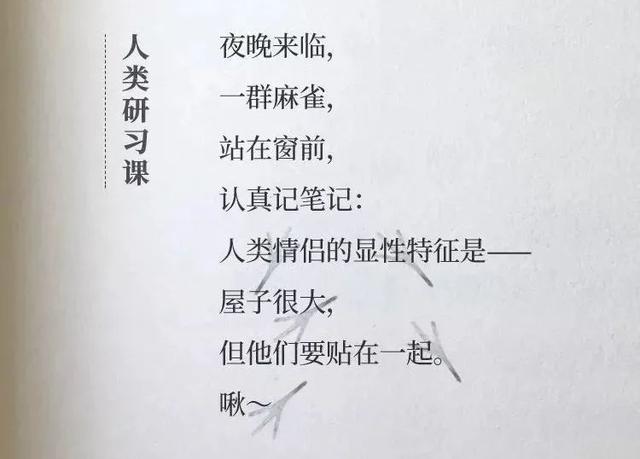 人类研习课
夜晚来临，
一群麻雀，
站在窗前，
认真记笔记：
人类情侣的显性特征是——
屋子很大，
但他们要贴在一起。
啾～